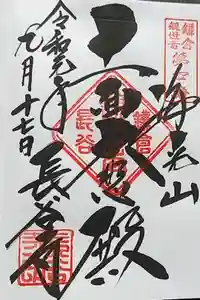 鎌倉
観世音第四番
海光山
十一面大悲殿
鎌倉
長谷
長谷寺
令和元年
九月十七日